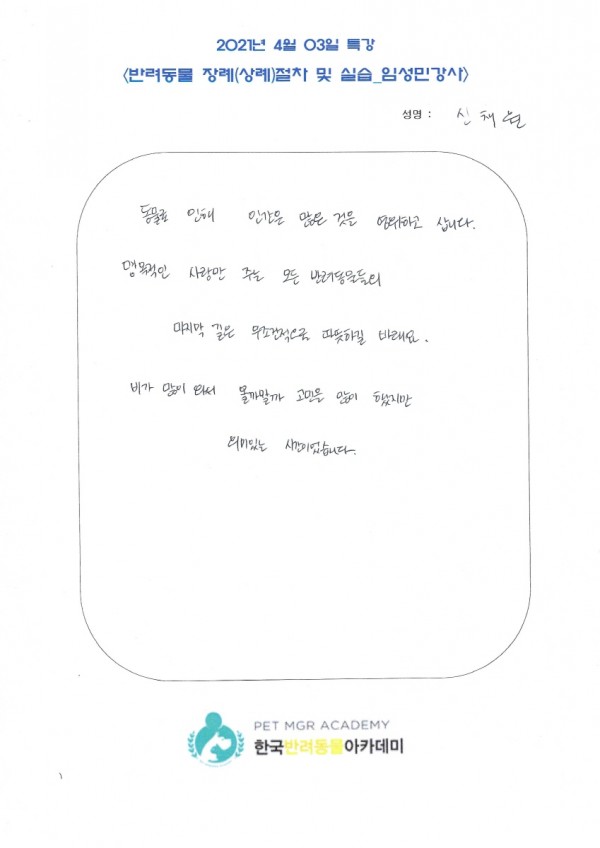 2021년 4월 03일 특강
<반려동물 장례(상례)절차 및 실습_임성민강사>
성명 : 신채원
동물로 인해 인간은 많은 것을 영위하고 삽니다.
맹목적인 사랑만 주는 모든 반려동물들의
마지막 길은 무조건적으로 따뜻하길 바래요.
비가 많이 와서 올까말까 고민은 많이 했지만
의미있는 시간이었습니다.
PET MGR ACADEMY
한국반려동물아카데미